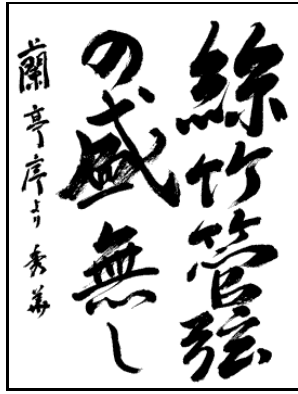 絲竹管弦
の盛無し
蘭亭序より 秀華